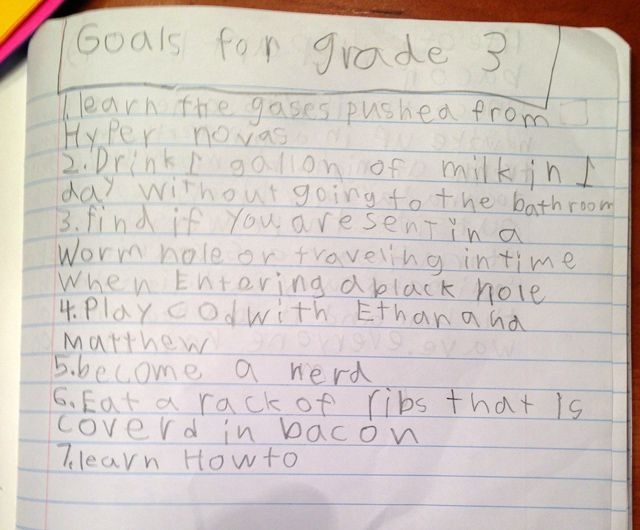 Goals for grade 3
1. learn the gases pushed from
Hyper novas
2. Drink 1 gallon of milk in 1
day without going to the bathroom
3. find if you are sent in a
Worm hole or traveling in time
When Entering a black hole
4. Play cod with Ethan and
Matthew
5. become a nerd
6. Eat a rack of ribs that is
coverd in bacon
7. learn How to